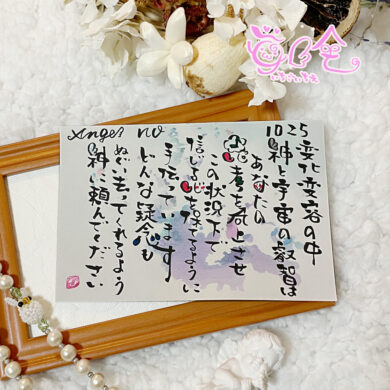 Angel no
1025
変化変容の中
神と宇宙の叡智は
あなたの
を向上させ
この状況下で
信じる心を保てるように
手伝っています
どんな疑念も
ぬぐい去ってくれるよう
神に頼んでください